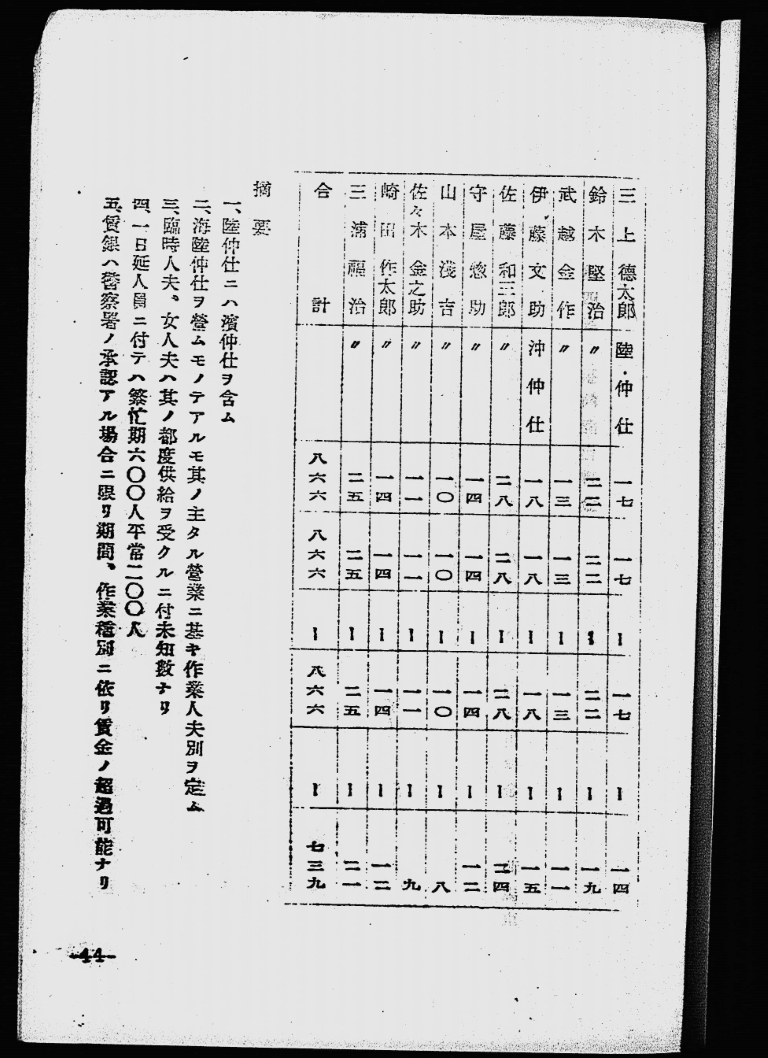 三上德太郎 陸・仲仕 一七 一七 ー 一七 ー 一四
鈴木堅治 〃 二二 二二 ー 二二 ー 一九
武越金作 〃 一三 一三 ー 一三 ー 一一
伊藤文助 沖仲仕 一八 一八 ー 一八 ー 一五
佐藤和三郎 〃 二八 二八 ー 二八 ー 二四
守屋惣助 〃 一四 一四 ー 一四 ー 一二
山本淺吉 〃 一〇 一〇 ー 一〇 ー 八
佐々木金之助 〃 一一 一一 ー 一一 ー 九
崎田作太郎 〃 一四 一四 ー 一四 ー 一二
三浦福治 〃 二五 二五 ー 二五 ー 二一
合計 八六六 八六六 ー 八六六 ー 七三九
摘要
一、陸仲仕ニハ濱仲仕ヲ含ム
二、海陸仲仕ヲ營ムモノテアルモ其ノ主タル營業ニ基キ作業人夫別ヲ定ム
三、臨時人夫、女人夫ハ其ノ都度供給ヲ受クルニ付未知數ナリ
四、一日延人員ニ付テハ繁忙期六〇〇人平常二〇〇人
五、賃銀ハ警察署ノ承認アル場合ニ限リ期間、作業種別ニ依リ賃金ノ超過可能ナリ
-44-